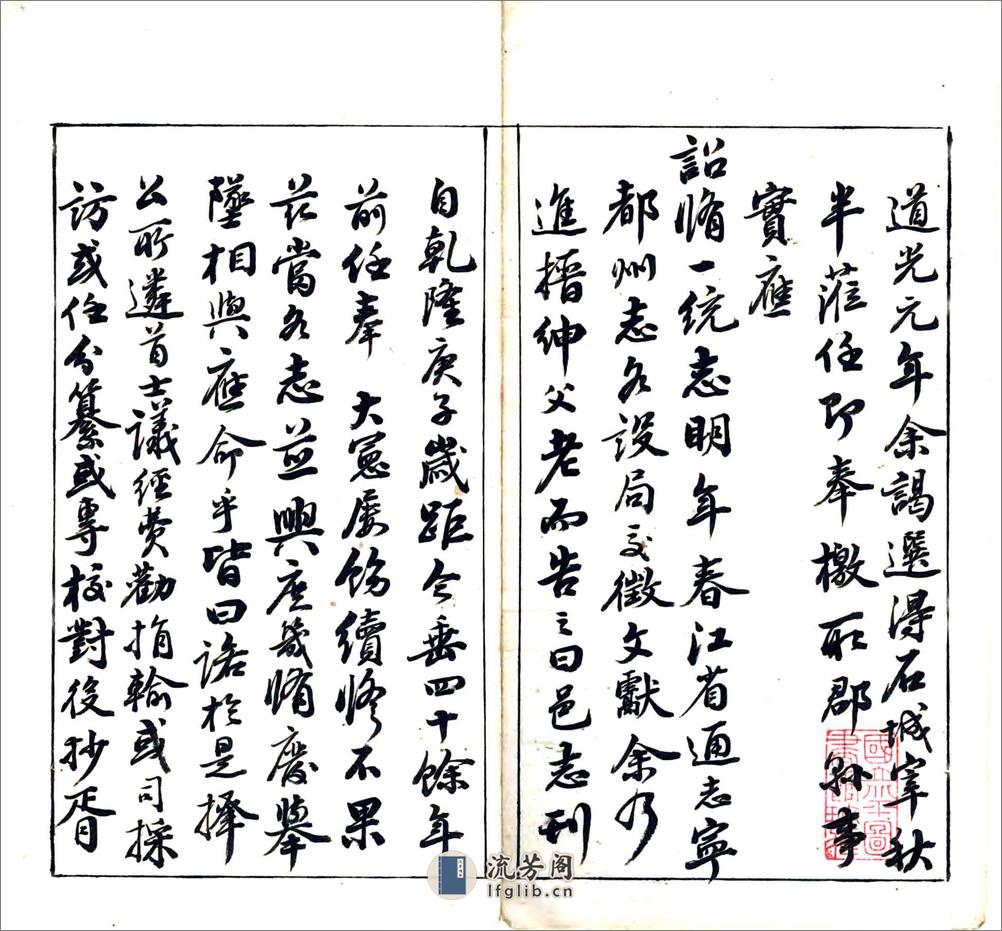 道光元年余謁選得石城宰秋
半蒞任即奉檄取郡縣事
實應
詔脩一統志明年春江省通志寧
都州志各設局交徵文獻余乃
進搢紳父老而告之曰邑志刊
自乾隆庚子歲距今垂四十餘年
前任奉 大憲屢飭續修不果
茲當各志並興庶幾脩廢舉
墜相與應命乎皆曰諾於是擇
公所遴首士議經費勸捐輸或司採
訪或任分纂或專校對後抄胥
流芳阁
lfglib.cn